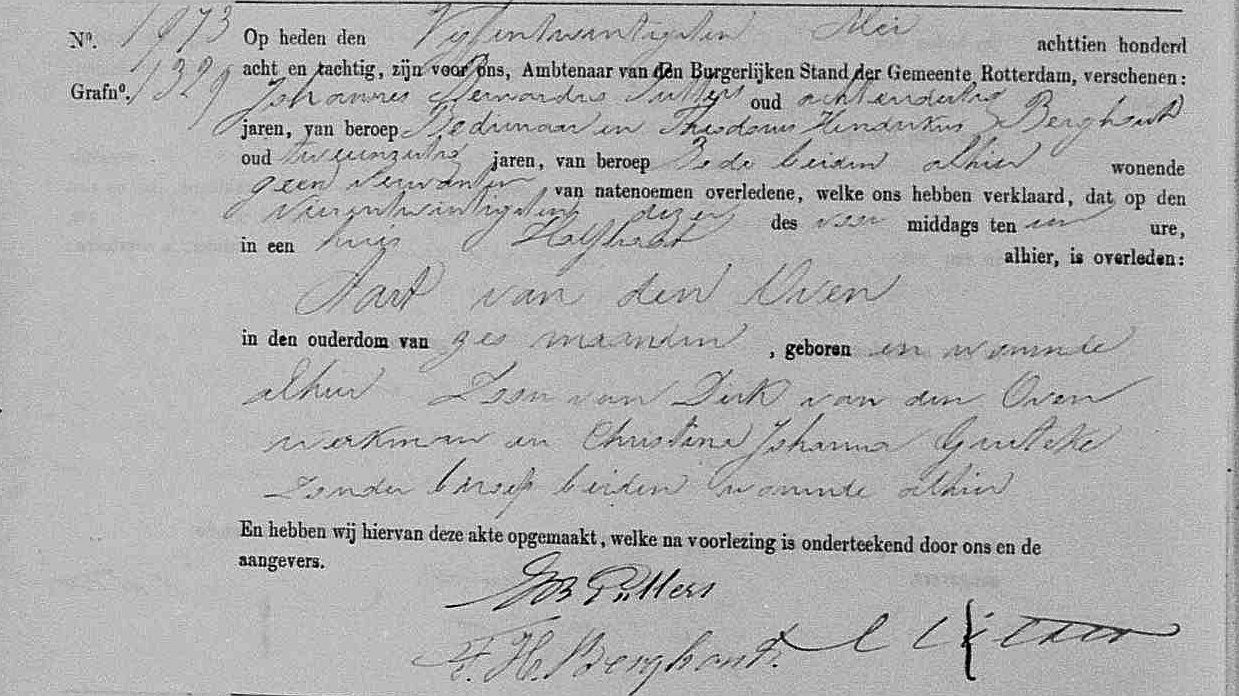 No. 1973 Op heden den Vyfentwintigsten Mei achttien honderd
Grafno. 1329 acht en tachtig, zijn voor ons, Ambtenaar van den Burgerlijken Stand der Gemeente Rotterdam, verschenen:
Johannes Bernardus Putters oud achtendertig
jaren, van beroep Bedienaar en Theodorus Hendrikus Berghout
oud tweeenzestig jaren, van beroep Bode beiden alhier wonende
geen verwanten van natenoemen overledene, welke ons hebben verklaard, dat op den
Vierentwintigsten dezer des voor middags ten een ure,
in een huis alhier, is overleden:
Aart van den Oven
in den ouderdom van zes maanden, geboren en wonende
alhier Zoon van Dirk van den Oven
werkman en Christina Johanna
Zonder beroep beiden wonende alhier
En hebben wij hiervan deze akte opgemaakt, welke na voorlezing is onderteekend door ons en de
aangevers.
JB Putters
T. H. Berghout.